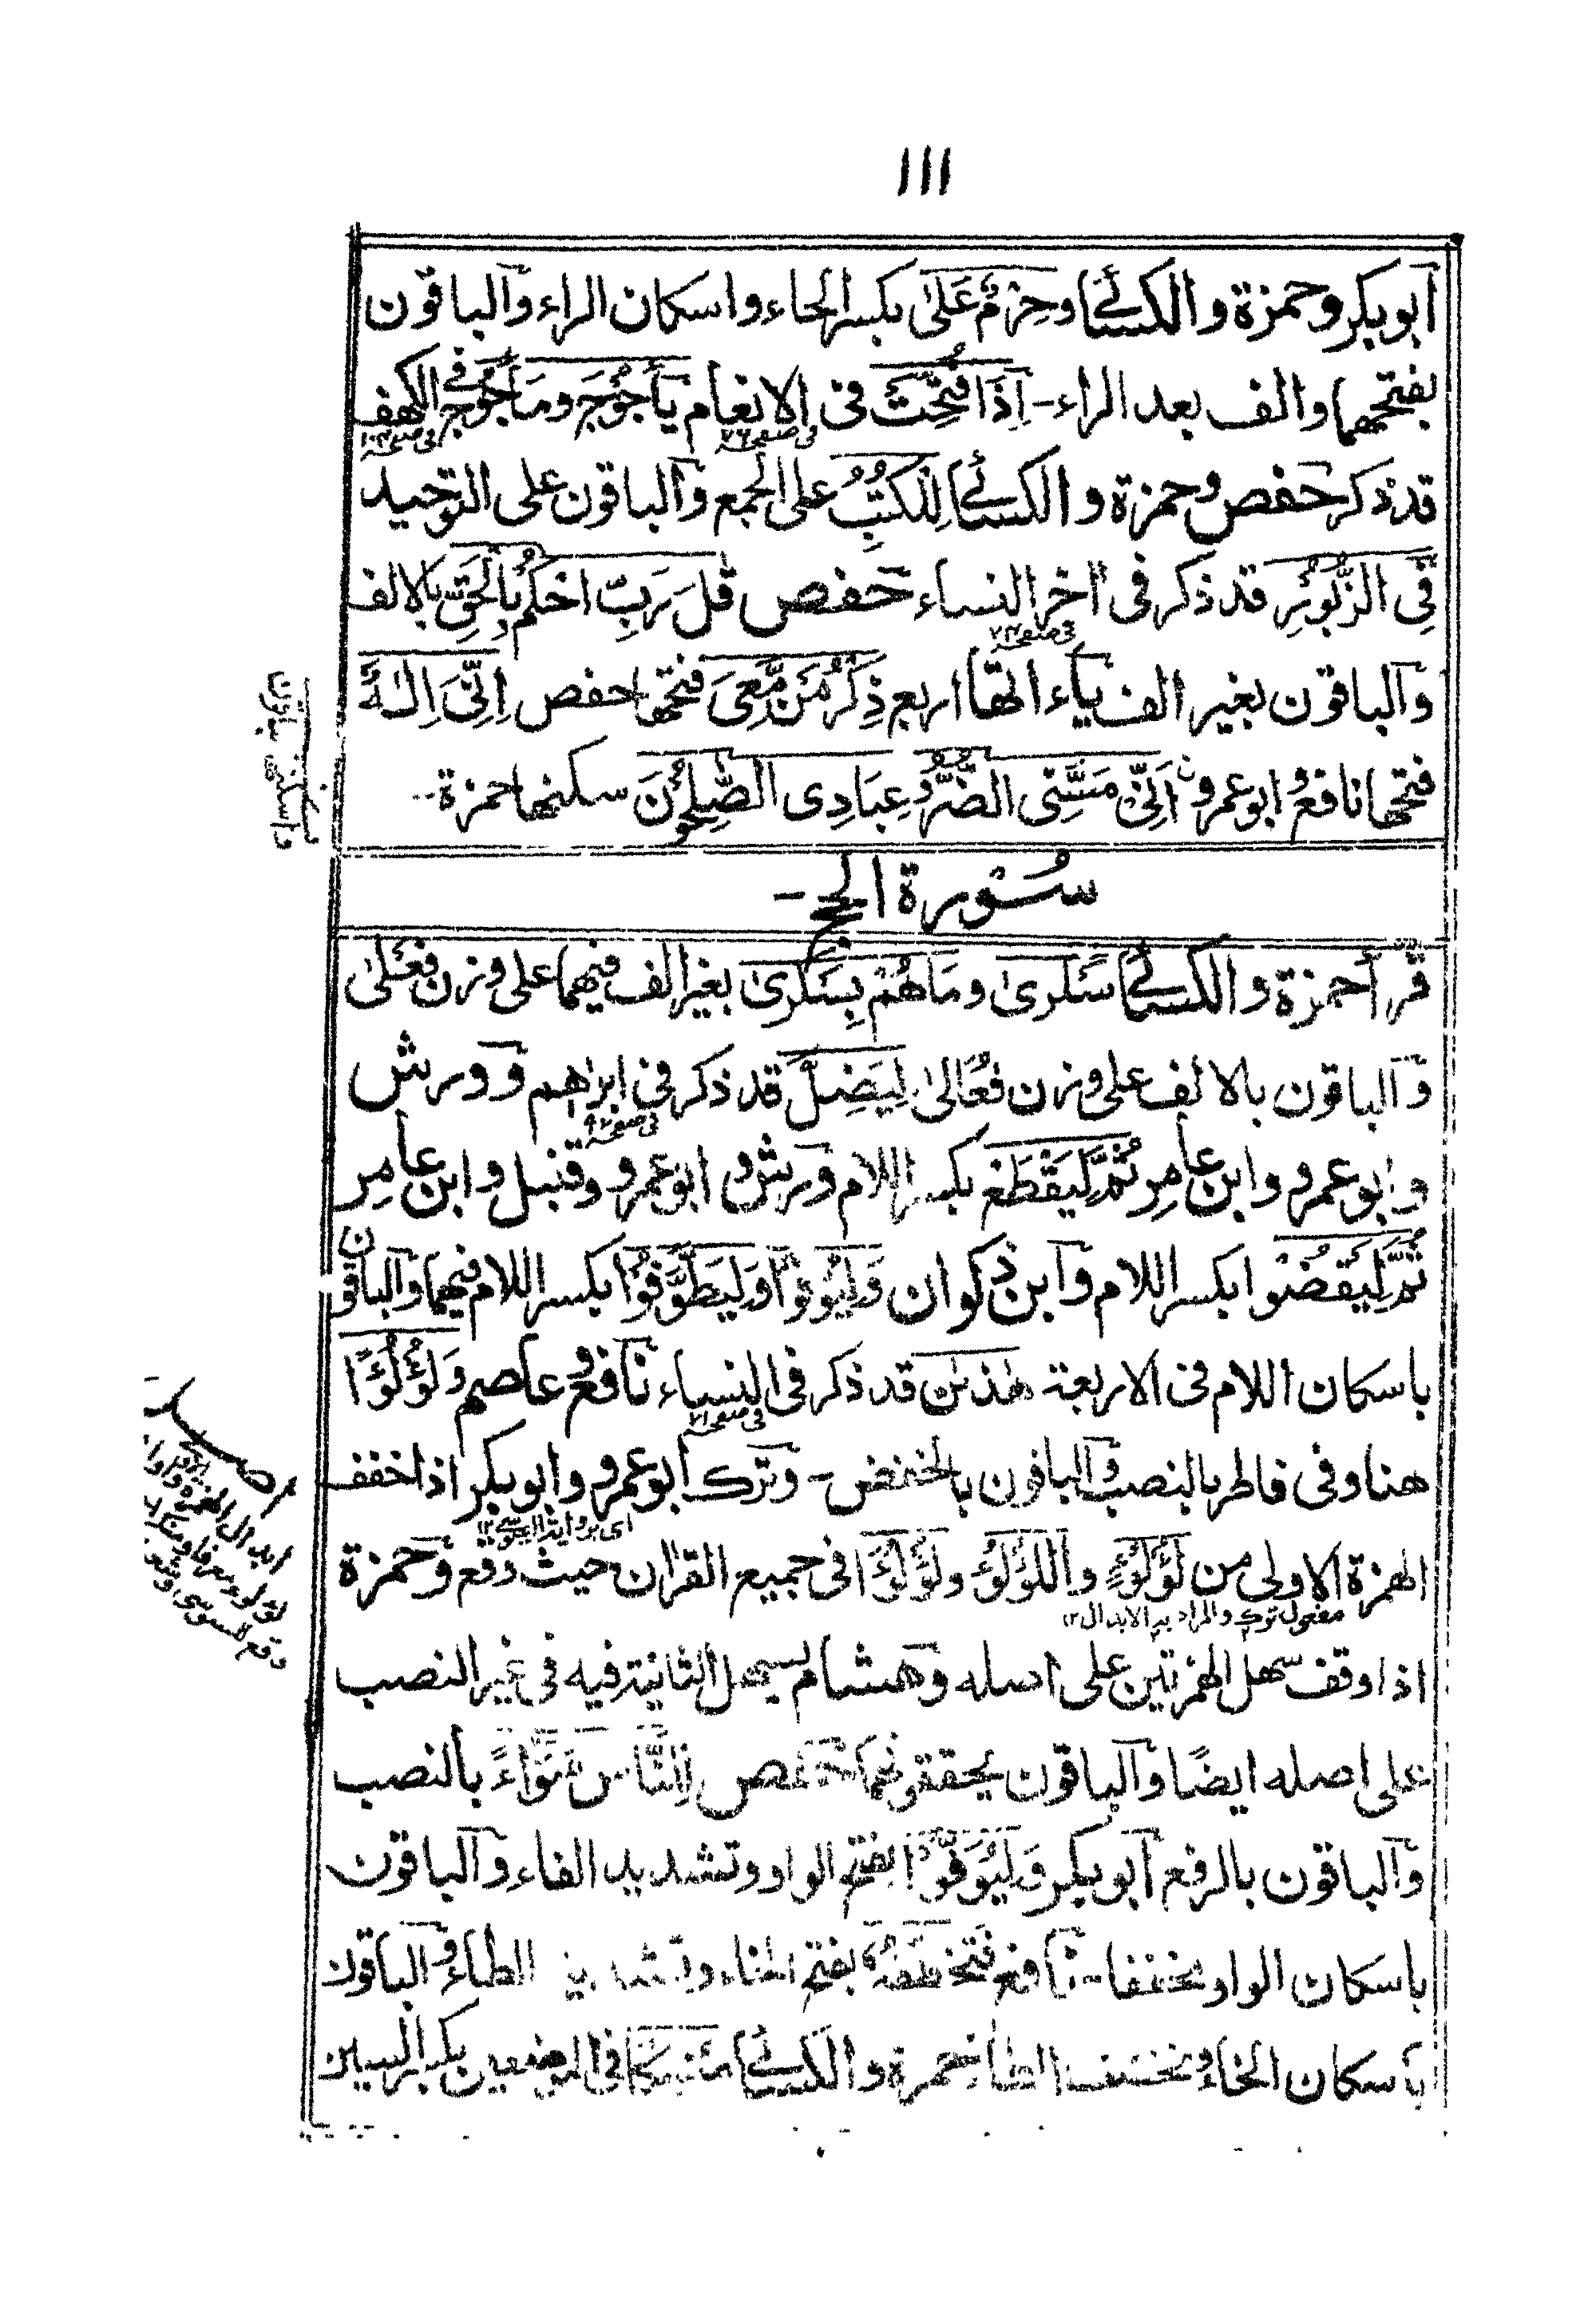 ١١١
ابوبكر وحمزة والكسائي وحِرْمٌ عَلىٰ بكسر الحاء واسكان الراء والباقون
بفتحهما والف بعد الراء - اِذَا فُتِّحَتْ فى الانعام يَأْجُوْجَ ومَأْجُوْجَ فى الكهف
فى صفحه
قد ذكر حفص وحمزة والكسائي لِلْكُتُبِ على الجمع والباقون على التوحيد
فِى الزَّبُوْرِ قد ذكر فى اٰخر النساء حفص قٰلَ رَبِّ احْكُمْ بِالْحَقِّ بالالف
فى صفحه
والباقون بغير الف ياء اتها اربع ذِكْرُ مَنْ مَّعِىَ فتحها حفص اِنِّىَ اِلٰهٌ
فتحها نافع وابو عمرو اَنِّىْ مَسَّنِى الضُّرُّ وعِبَادِى الصّٰلِحُوْنَ سكنها حمزة
سُوْرة الحج -
قرأ حمزة والكسائي سَكْرىٰ وما هُمْ بِسَكْرىٰ بغير الف فيهما على وزن فَعْلىٰ
والباقون بالالف على وزن فُعَالىٰ لِيَضِلَّ قد ذكر فى ابرٰهيم وورش
فى صفحه
وابو عمرو وابن عامر ثُمَّ لِيَقْطَعْ بكسر اللام ورش وابو عمرو وقنبل وابن عامر
ثُمَّ لِيَقْضُوْا بكسر اللام وابن ذكوان وَلِيُوْفُوْا وَلِيَطَّوَّفُوْا بكسر اللام فيهما والباقون
باسكان اللام فى الاربعة هٰذٰن قد ذكر فى النساء نافع وعاصم وَلُؤْلُؤًا
فى صفحه
هنا وفى فاطر بالنصب والباقون بالخفض - وترك ابو عمرو وابوبكر اذا خفف
اى بروايتة السوسى ١٢
الهمزة الاولى من لُؤْلُؤٍ واللُّؤْلُؤُ ولُؤْلُؤًا فى جميع القراٰن حيث وقع وحمزة
مفعول ترك والمراد به الابدال ١٢
اذا وقف سهل الهمزتين على اصله وهشام يسهل الثانية فيه فى غير النصب
على اصله ايضًا والباقون يحققونهما حفص لِلنَّاسِ سَوَآءً بالنصب
والباقون بالرفع ابوبكر وَلْيُوَفُّوْا بفتح الواو وتشديد الفاء والباقون
باسكان الواو مخففا - نافع فَتَخَطَّفُهٗ بفتح الخاء وتشديد الطاء والباقون
باسكان الخاء وتخفيف الطاء حمزة والكسائي مَنْسِكًا فى الموضعين بكسر السين